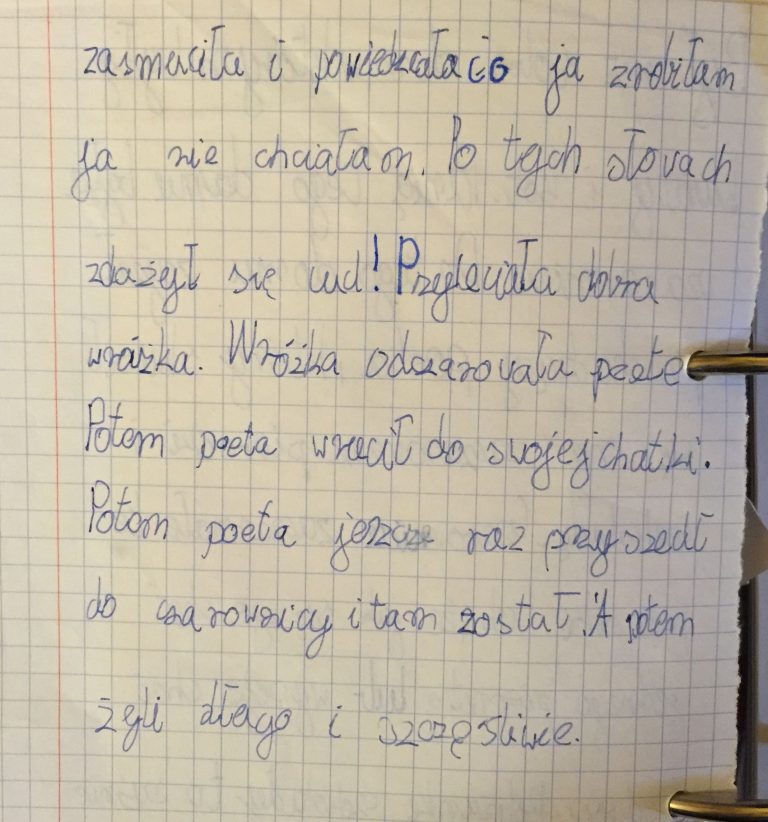 zasmuciła i powiedziała co ja zrobiłam
ja nie chciałam. Po tych słowach
zdażył się cud! Przyleciała dobra
wróżka. Wróżka odczarowała poete
Potem poeta wrócił do swojej chatki.
Potem poeta jeszcze raz przyszedł
do czarownicy i tam został. A potem
żyli długo i szczęśliwie.